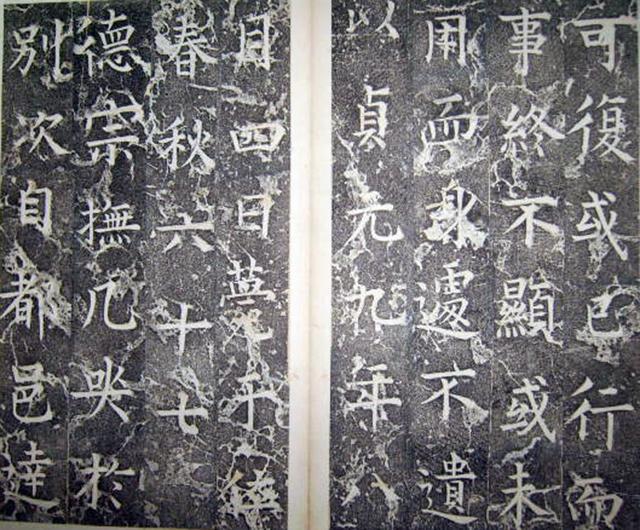 可復或已行而
事終不顯或未
用而身遽不遺
以貞元九年
月四日薨
春秋六十七
德宗撫几哭於
別次自都邑達